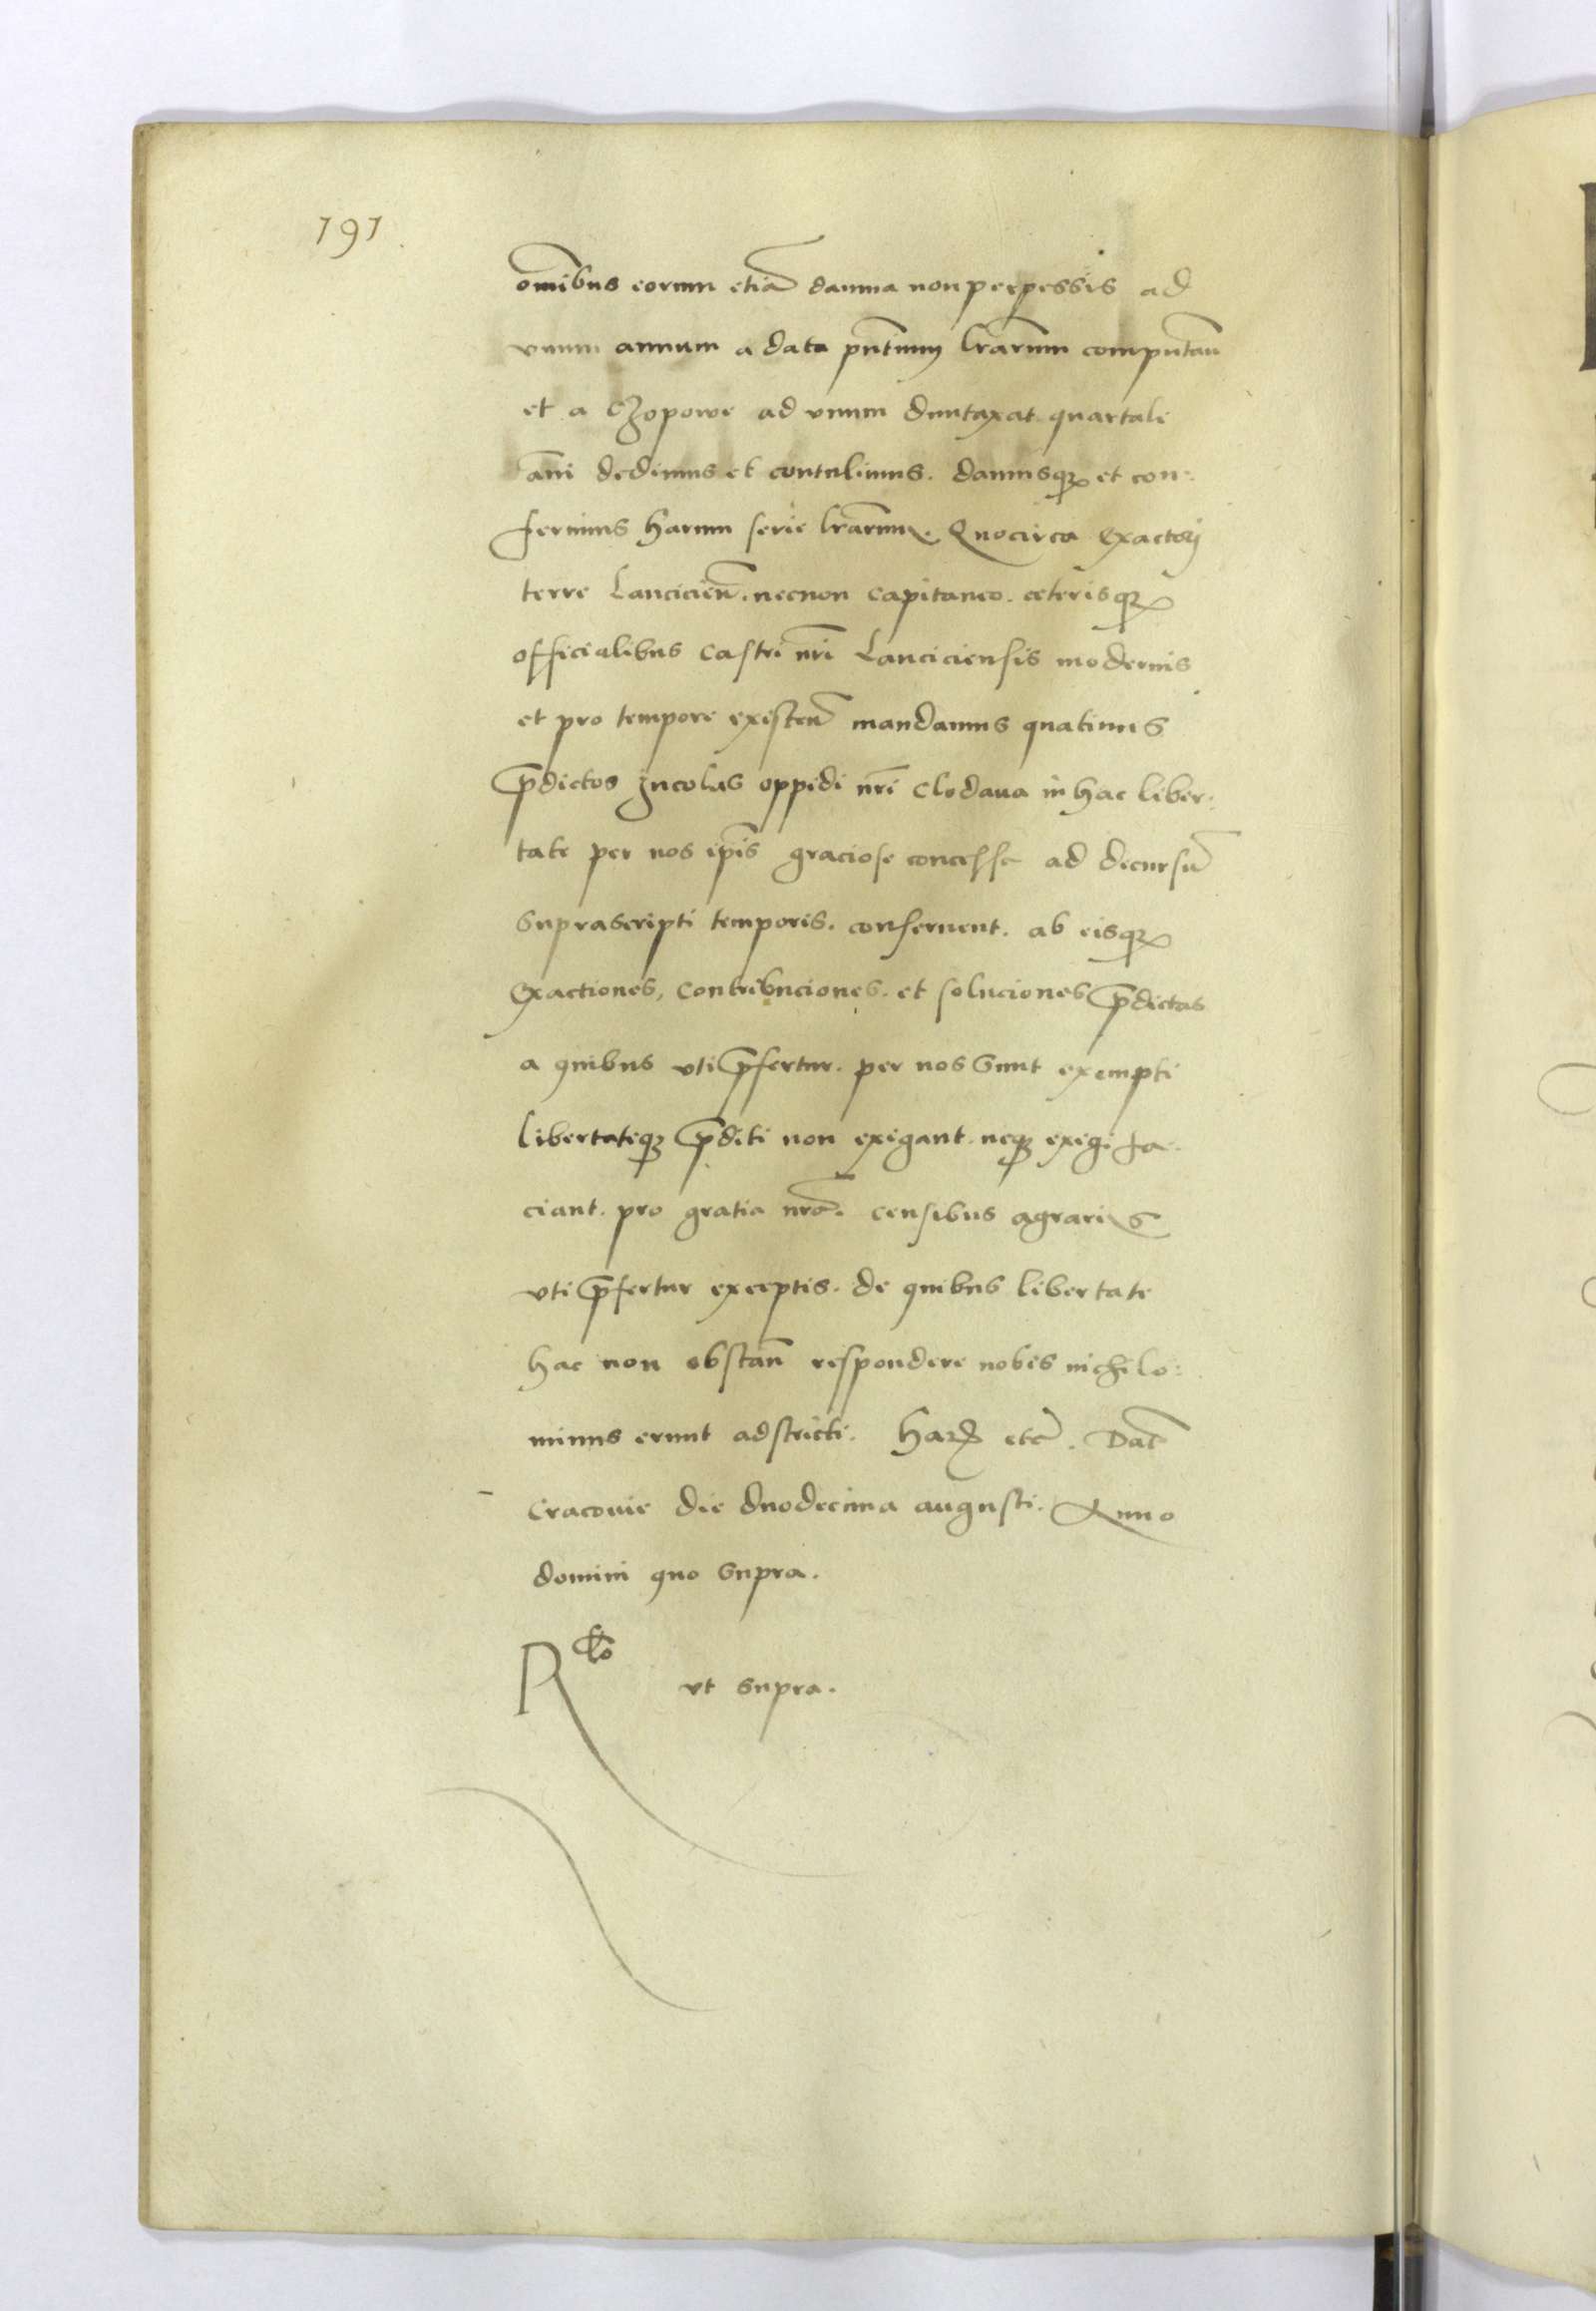 191
om̄ibus eorum etiā damna non perpessis ad
vnum annum a data pn̄tium lrārum computan̄
et a Czopowe ad vnum duntaxat quartale
an̄i dedimus et contulimus. damusqꝫ et con-
ferimus harum serie lrārum. Quocirca Exactorj
terre Lancicien̄. necnon Capitaneo. ceterisqꝫ
officialibus Castri nr̄i Lanciciensis modernis
et pro tempore existen̄ mandamus quatinus
p̄dictos Jncolas oppidi nr̄i Clodaua in hac liber-
tate per nos ip̄is graciose concessa ad decursū
suprascripti temporis. conseruent. ab eisqꝫ
Exactiones, Contribuciones. et soluciones p̄dictas
a quibus vti p̄fertur. per nos sunt exempti
libertateqꝫ p̄diti non exigant. neqꝫ exigi fa-
ciant. pro gratia nrā. Censibus agrariis
vti p̄fertur exceptis. de quibus libertate
hac non obstan̄ respondere nobis nichilo-
minus erunt adstricti. Harꝝ etc̄. Dat̄
Cracouie die duodecima augusti. Anno
domini quo supra.
R
ut supra.